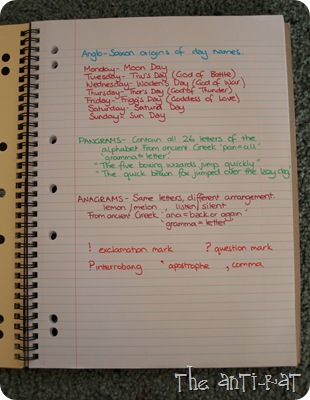 Anglo-Saxon origins of day names.
Monday- Moon Day
Tuesday- Tiw's Day (God of Battle)
Wednesday- Woden's Day (God of War)
Thursday- Thor's Day (God of Thunder)
Friday- Frigg's Day (Goddess of Love)
Saturday- Saturn Day
Sunday- Sun Day
PANGRAMS- Contain all 26 letters of the
alphabet. From ancient Greek 'pan=all'
'gramma=letter'
"The five boxing wizards jump quickly"
"The quick brown fox jumped over the lazy dog
ANAGRAMS- Same letters, different arrangement.
lemon/melon, listen/silent
From ancient Greek 'ana=back or again'
'gramma=letter'
! exclamation mark ? question mark
‽ interrobang ' apostrophe , comma
The Anti-Rat